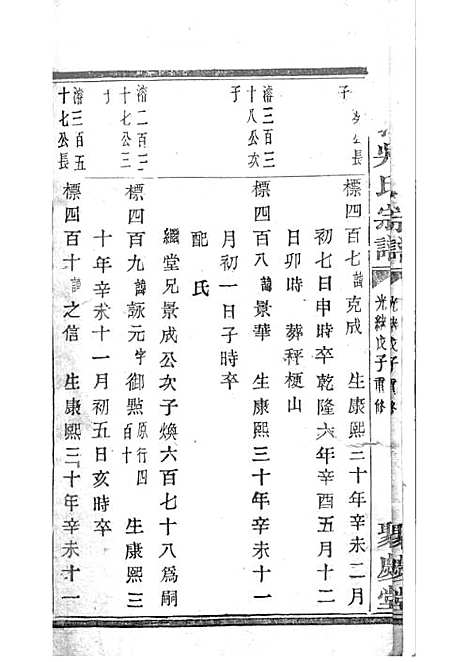 吳氏宗譜
光緒戊子重修
聚慶堂
公長
子
標四百七諱克成 生康熙三十年辛未二月
初七日申時卒乾隆六年辛酉五月十二
日卯時 葬秤梗山
溶三百三
十八公次
子
標四百八諱景華 生康熙三十年辛未十一
月初一日子時卒
配 氏
繼堂兄景成公次子煥六百七十八為嗣
溶二百二
十七公三
標四百九諱詠元字御㸃原行四百十 生康熙三
十年辛未十一月初五日亥時卒
溶三百五
十七公長
標四百十諱之信 生康熙三十年辛未十一